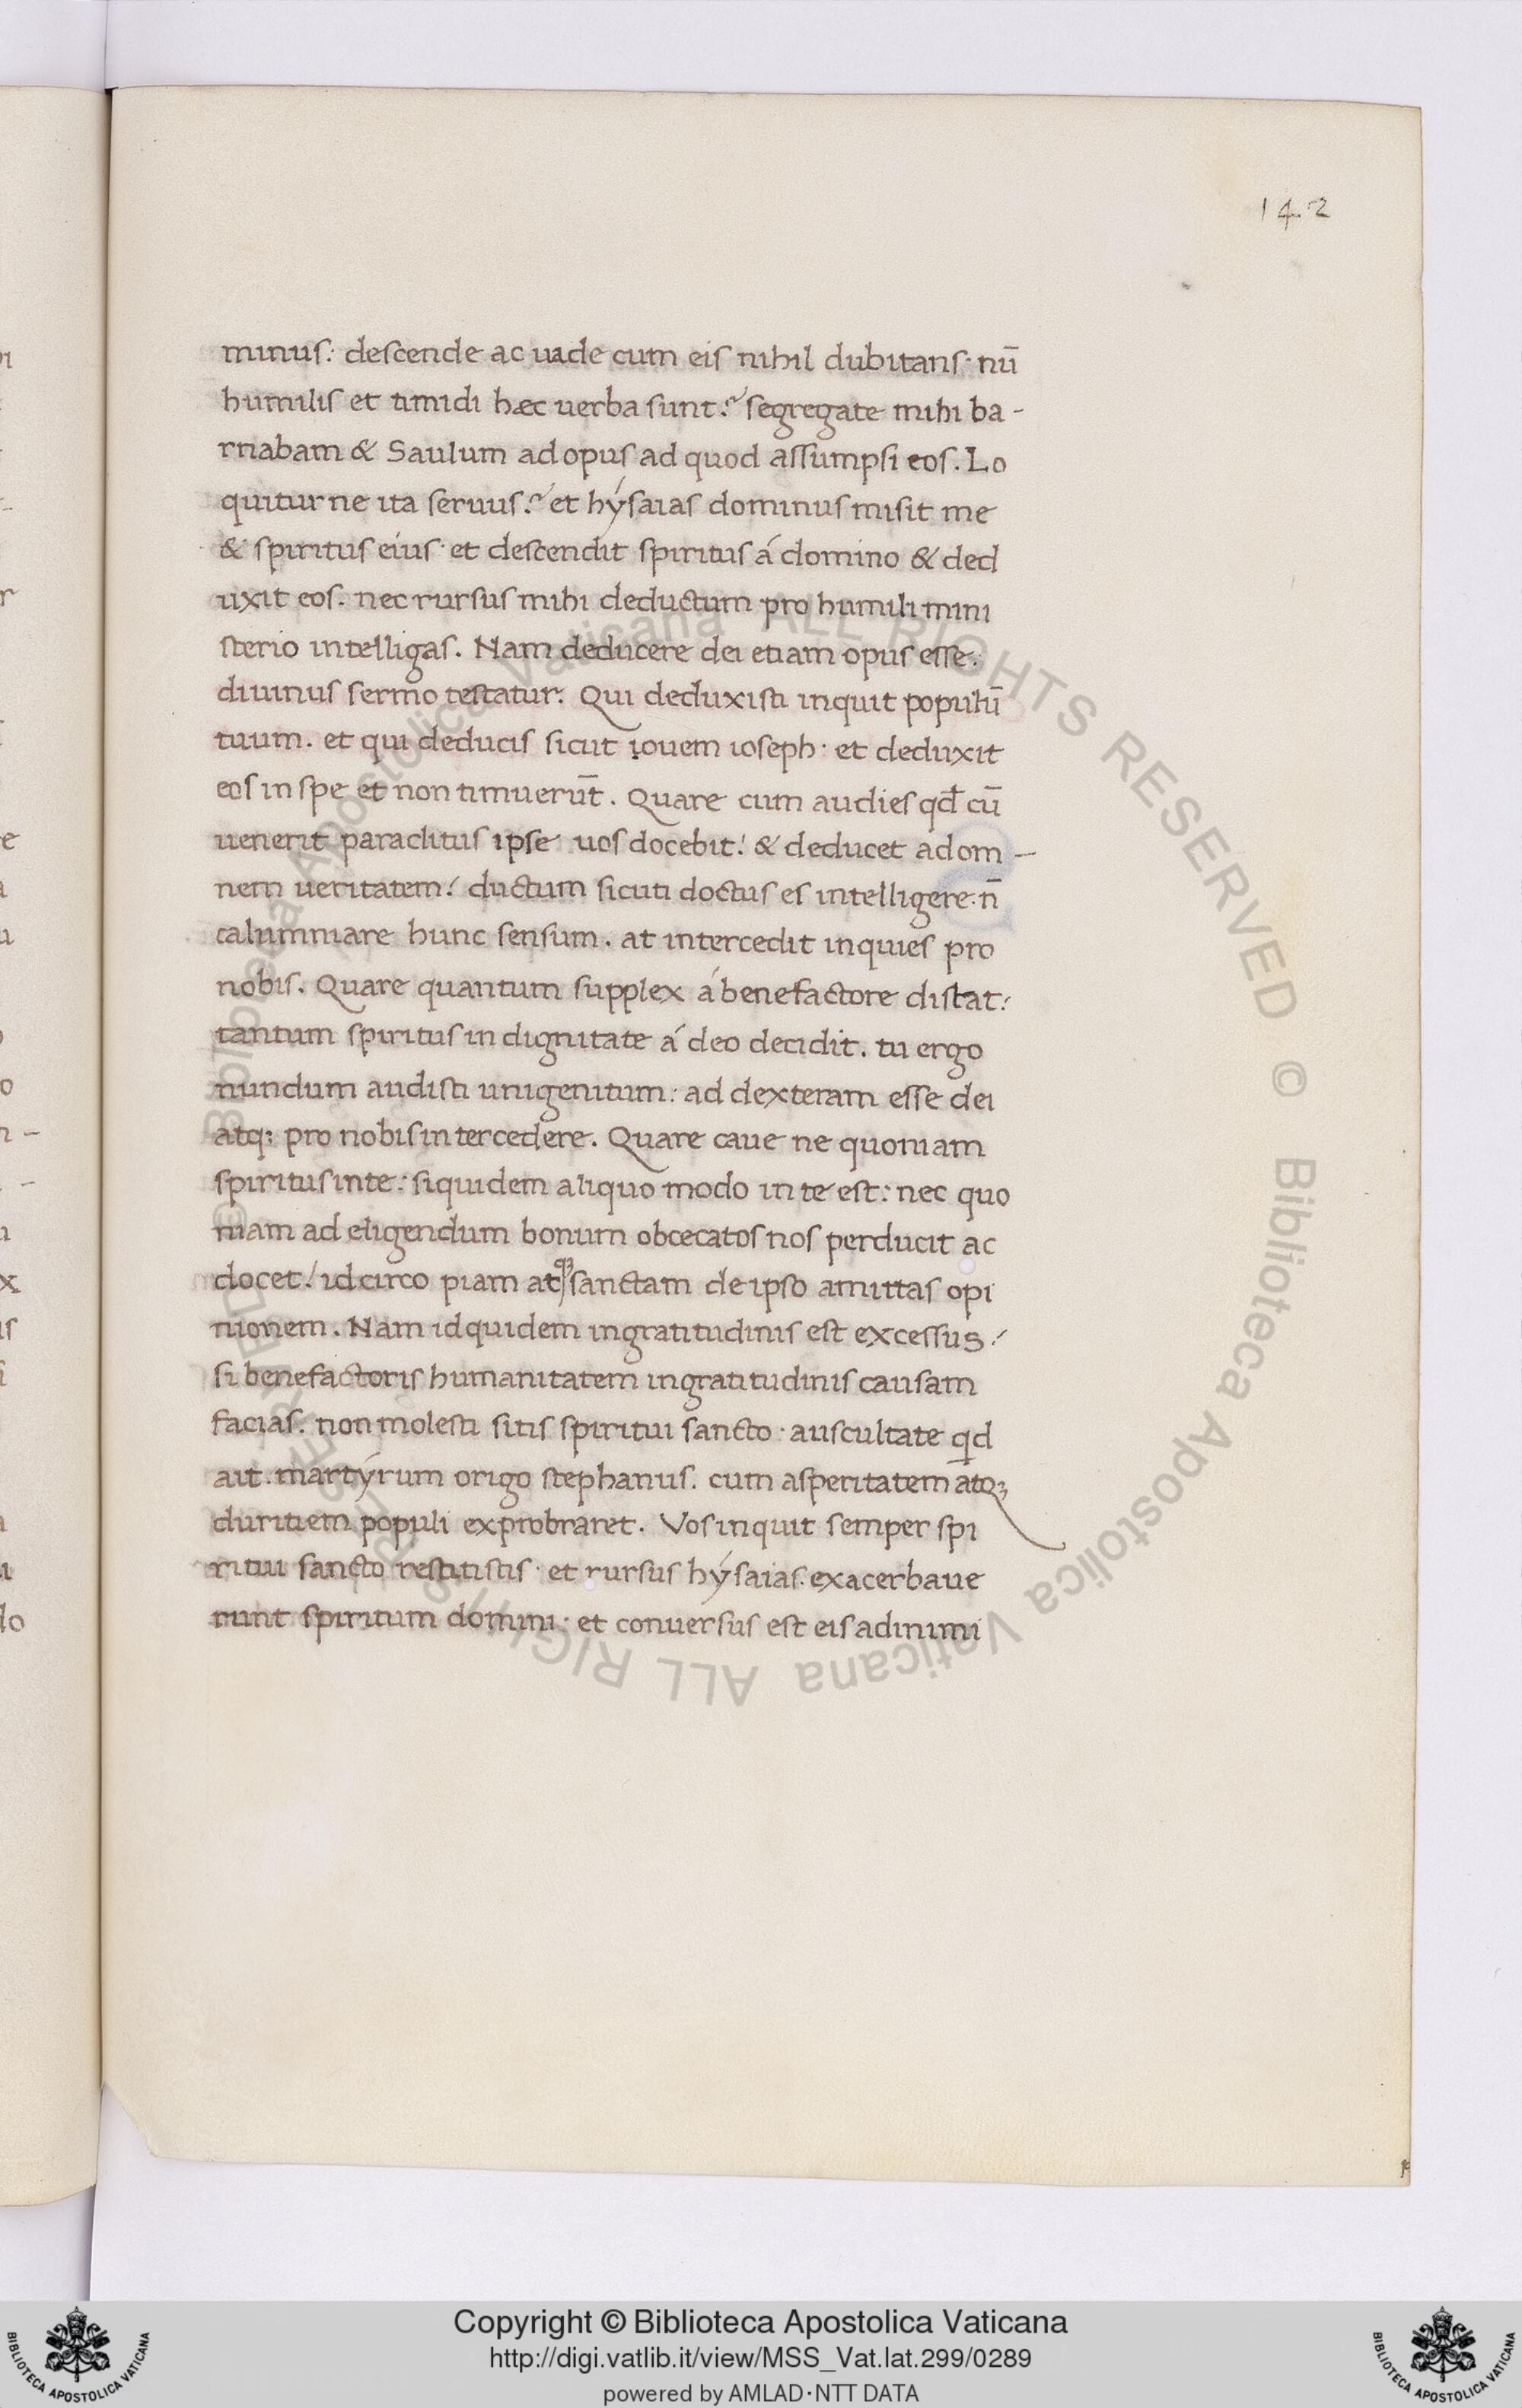 142
minus: descende ac uade cum eis nihil dubitans· nū
humilis et timidi hæc uerba sunt? segregate mihi ba-
rnabam & Saulum ad opus ad quod assumpsi eos. Lo
quitur ne ita seruus? et hýsaias dominus misit me
& spiritus eius· et descendit spiritus á domino & ded
uxit eos. nec rursus mihi deductum pro humili mini
sterio intelligas. Nam deducere dei etiam opus esse:
diuinus sermo testatur. Qui deduxisti inquit populū
tuum. et qui deducis sicut iouem ioseph: et deduxit
eos in spe et non timuerūt. Quare cum audies qđ cū
uenerit paraclitus ipse uos docebit! & deducet ad om-
nem ueritatem! ductum sicuti doctus es intelligere: n̄
calumniare hunc sensum. at intercedit inquies pro
nobis. Quare quantum supplex á benefactore distat:
tantum spiritus in dignitate á deo decidit. tu ergo
nundum audisti unigenitum: ad dexteram esse dei
atq; pro nobis intercedere. Quare caue ne quoniam
spiritus in te: siquidem aliquo modo in te est: nec quo
niam ad eligendum bonum obcecatos nos perducit ac
docet! idcirco piam atq; sanctam de ipso amittas opi
nionem. Nam id quidem ingratitudinis est excessus!
si benefactoris humanitatem ingratitudinis causam
facias. non molesti sitis spiritui sancto· auscultate qd
ait. martýrum origo stephanus. cum asperitatem atq;
duritiem populi exprobraret. Vos inquit semper spi
ritui sancto restitistis· et rursus hýsaias. exacerbaue
runt spiritum domini· et conuersus est eis ad inimi
© Biblioteca Apostolica Vaticana ALL RIGHTS RESERVED © Biblioteca Apostolica Vaticana ALL RIGHTS RESERVED
Copyright © Biblioteca Apostolica Vaticana
http://digi.vatlib.it/view/MSS_Vat.lat.299/0289
powered by AMLAD·NTT DATA
BIBLIOTECA APOSTOLICA VATICANA
BIBLIOTECA APOSTOLICA VATICANA